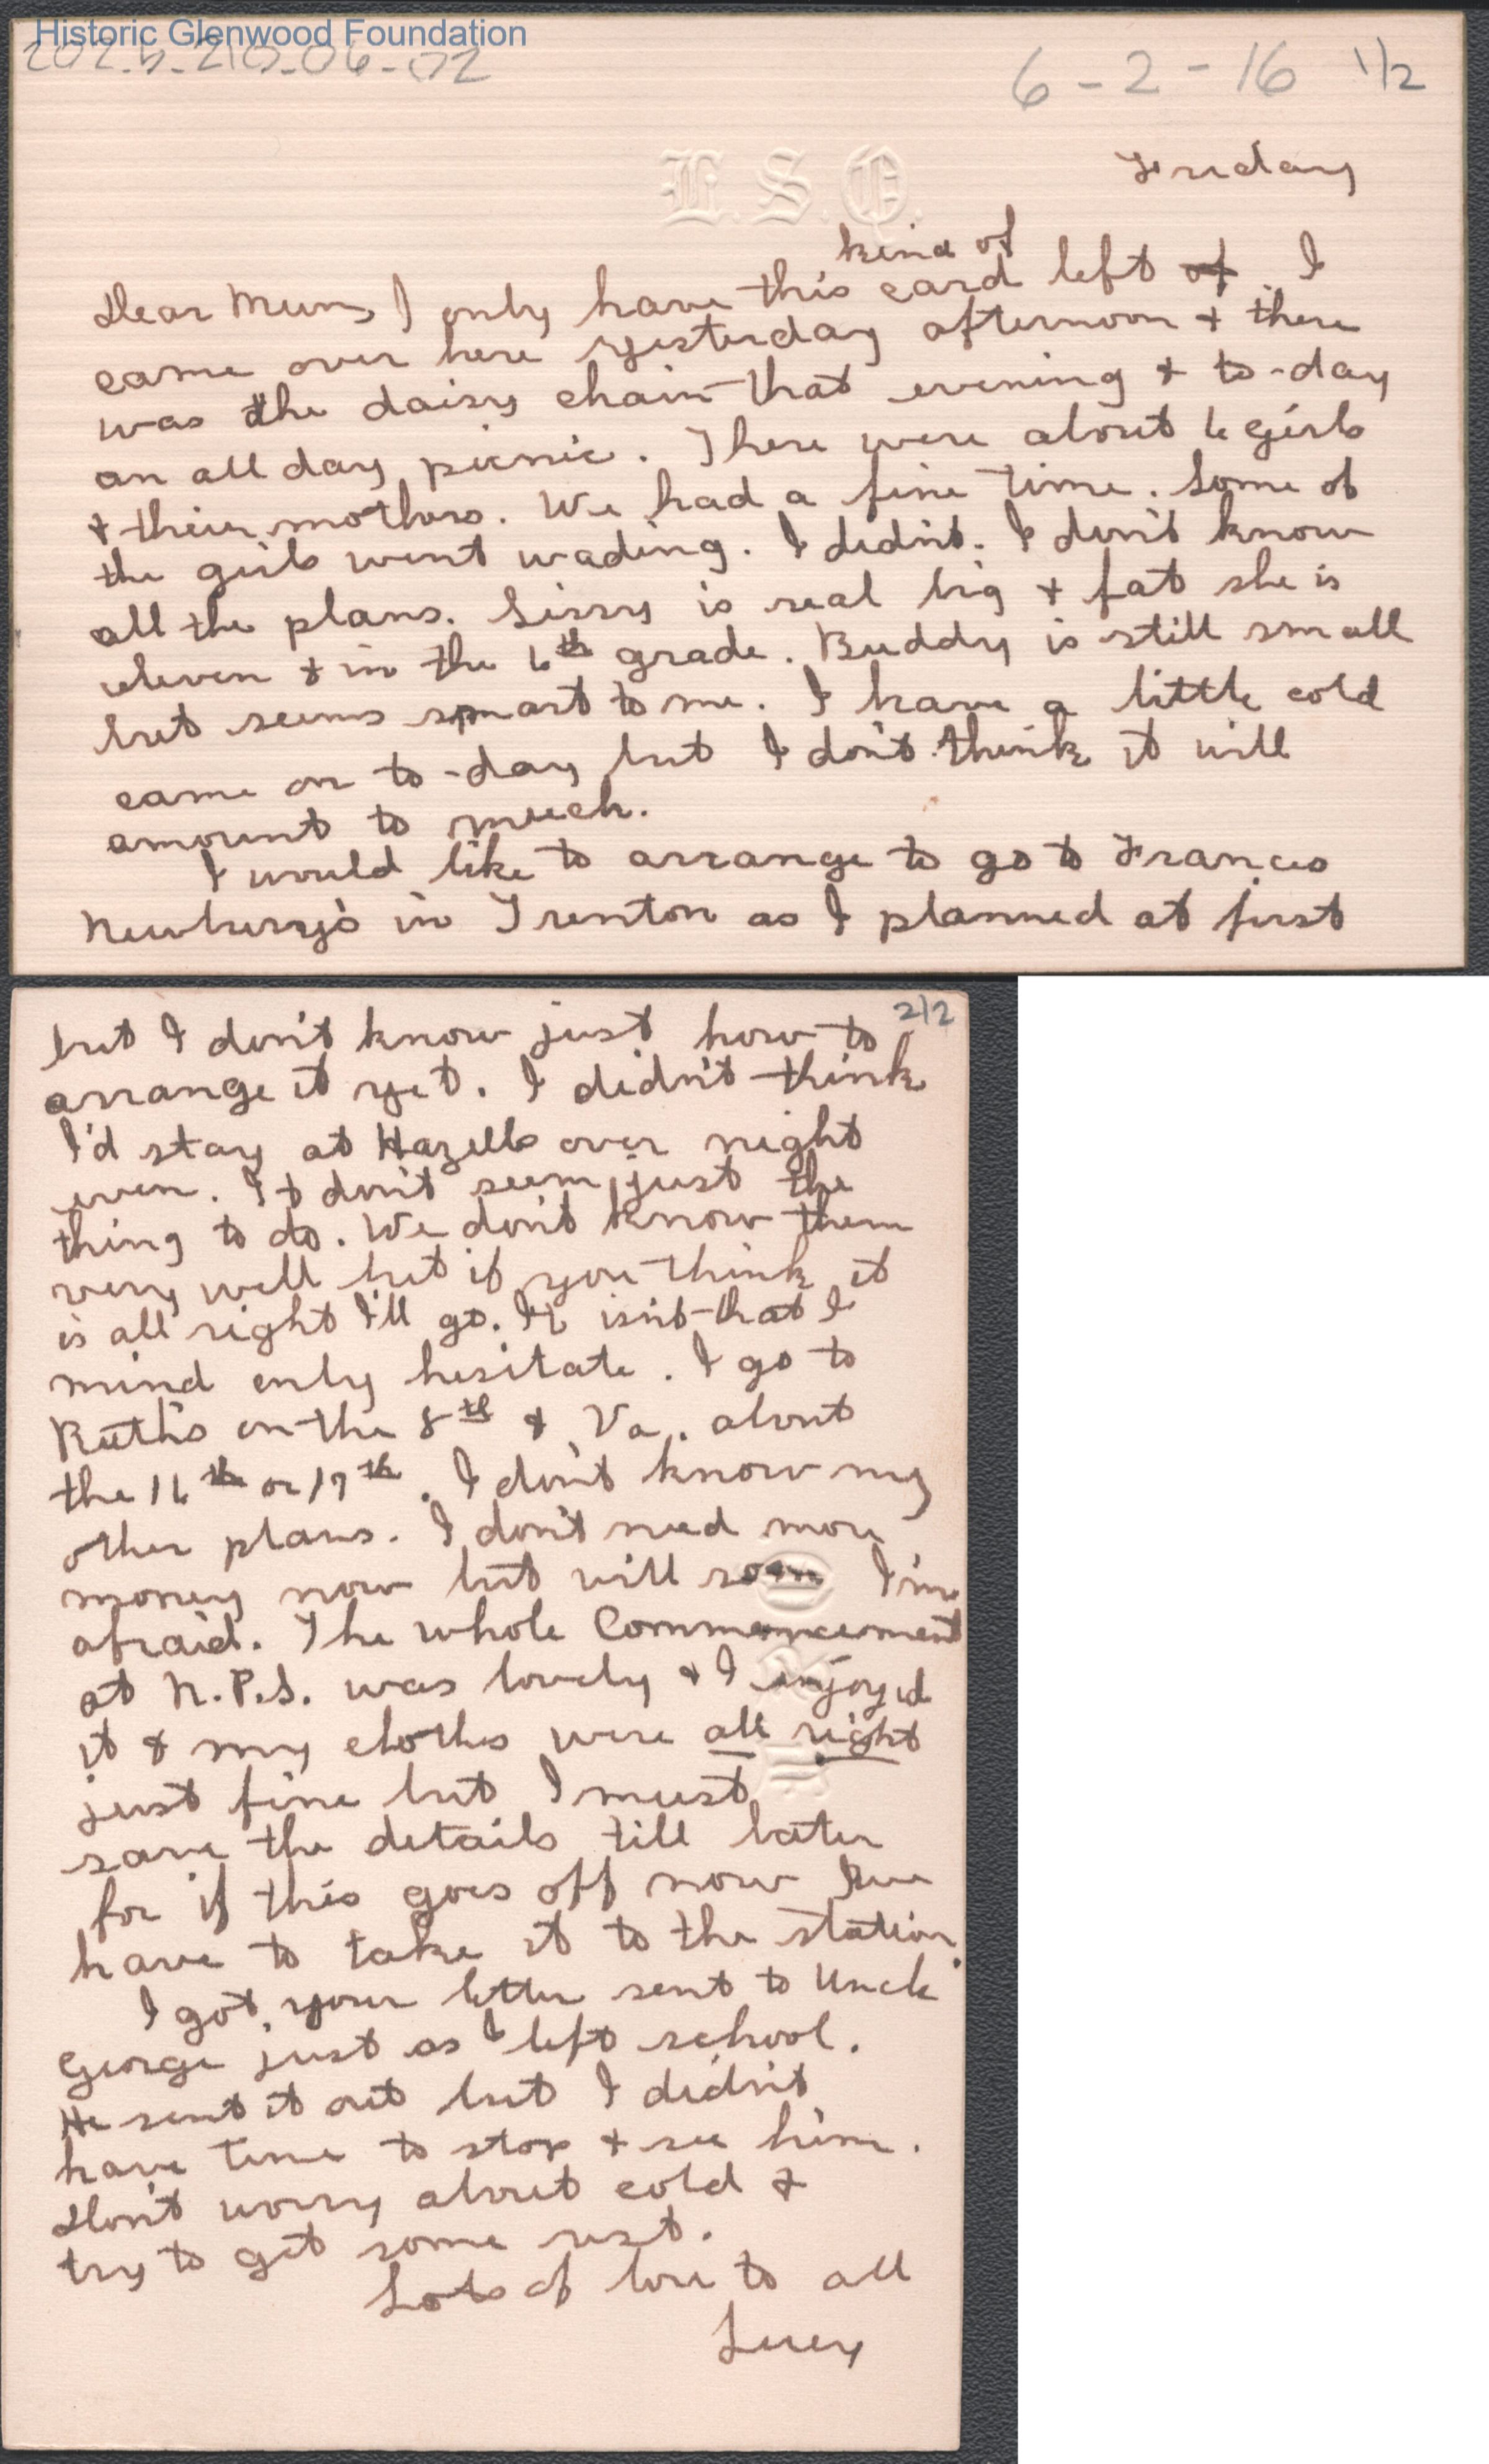 Historic Glenwood Foundation
2025-210-06-02
6-2-16 1/2
L.S.Q.
Friday
kind of
Dear Mum, I only have this card left of. I
came over here yesterday afternoon & there
was the daisy chain that evening & to-day
an all day picnic. There were about 6 girls
& their mothers. We had a fine time. Some of
the girls went wading. I didn't. I don't know
all the plans. Sissy is real big & fat she is
eleven & in the 6th grade. Buddy is still small
but seems smart to me. I have a little cold
came on to-day but I don't think it will
amount to much.
I would like to arrange to go to Frances
Newberry's in Trenton as I planned at first
2/2
but I don't know just how to
arrange it yet. I didn't think
I'd stay at Hazells over night
even. It don't seem just the
thing to do. We don't know them
very well but if you think it
is all right I'll go. It isn't that I
mind only hesitate. I go to
Ruth's on the 8th & Va. about
the 16th or 17th. I don't know my
other plans. I don't need more
money now but will soon I'm
afraid. The whole Commencement
at N.P.S. was lovely & I enjoyed
it & my clothes were all right
just fine but I must
save the details till later
for if this goes off now
have to take it to the station.
I got your letter sent to Uncle
George just as I left school.
He sent it out but I didn't
have time to stop & see him.
Don't worry about cold &
try to get some rest.
Lots of love to all
Lucy